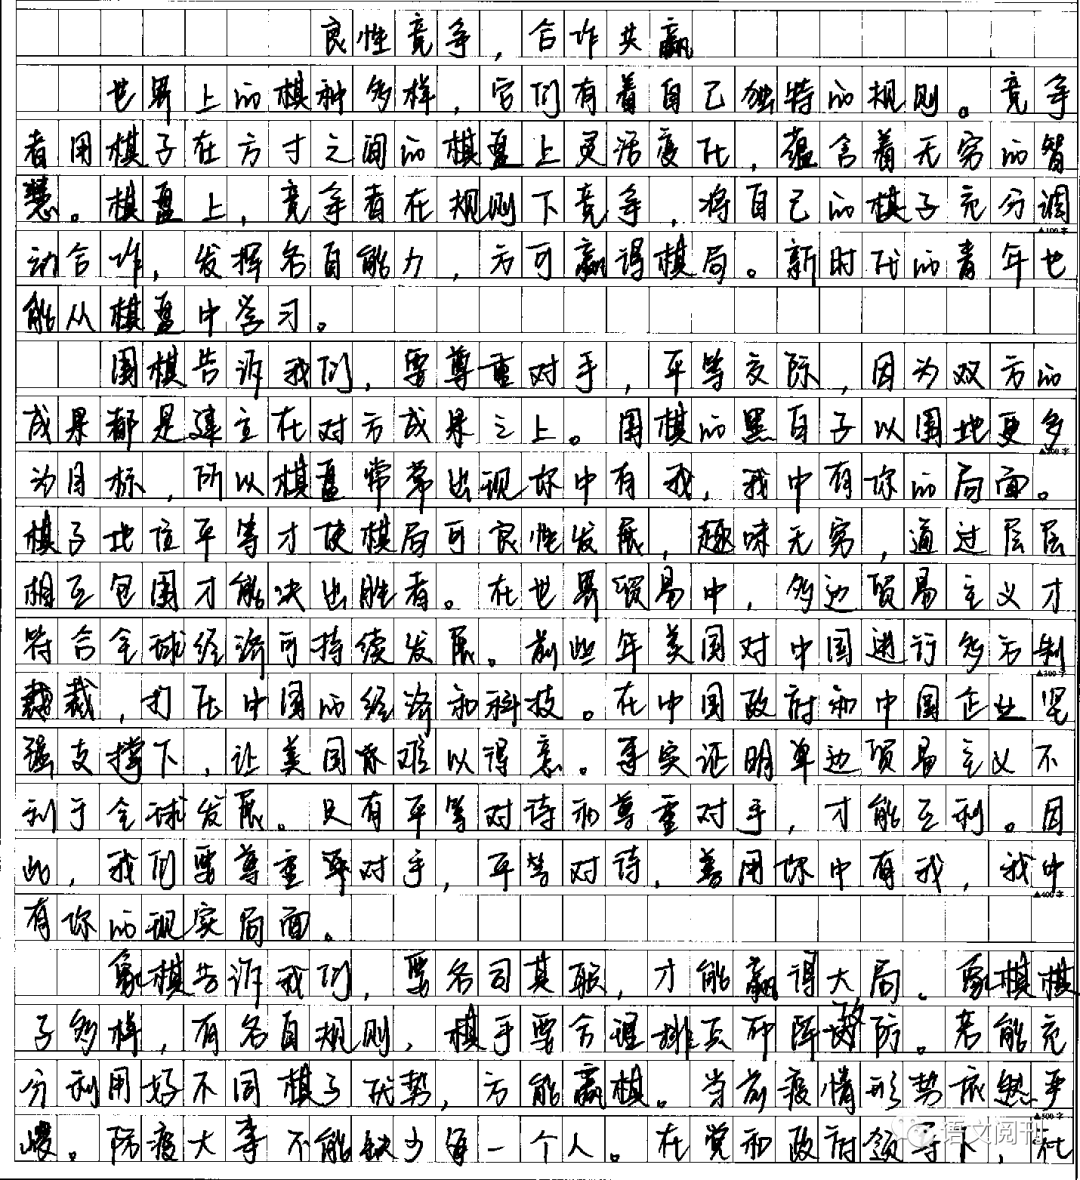 良性竞争，合作共赢
世界上的棋种多样，它们有着自己独特的规则。竞争
者用棋子在方寸之间的棋盘上灵活变化，蕴含着无穷的智
慧。棋盘上，竞争者在规则下竞争，将自己的棋子充分调
动合作，发挥各自能力，方可赢得棋局。新时代的青年也
能从棋盘中学习。
围棋告诉我们，要尊重对手，平等交际，因为双方的
成果都是建立在对方成果之上。围棋的黑白子以围地更多
为目标，所以棋盘常常出现你中有我，我中有你的局面。
棋子地位平等才使棋局可良性发展，趣味无穷，通过层层
相互包围才能决出胜者。在世界贸易中，多边贸易主义才
符合全球经济可持续发展。前些年美国对中国进行多方制
裁，打压中国的经济和科技。在中国政府和中国企业坚
强支撑下，让美国难以得意。事实证明单边贸易主义不
利于全球发展。只有平等对待和尊重对手，才能互利。因
此，我们要尊重对手，平等对待，善用你中有我，我中
有你的现实局面。
象棋告诉我们，要各司其职，才能赢得大局。象棋棋
子多样，有各自规则，棋手要合理排兵布阵设防。若能充
分利用好不同棋子优势，方能赢棋。当前疫情形势依然严
峻。防疫大事不能缺少每一个人。在党和政府领导下，社
▲100字
▲200字
▲300字
▲400字
▲500字
语文阅刊